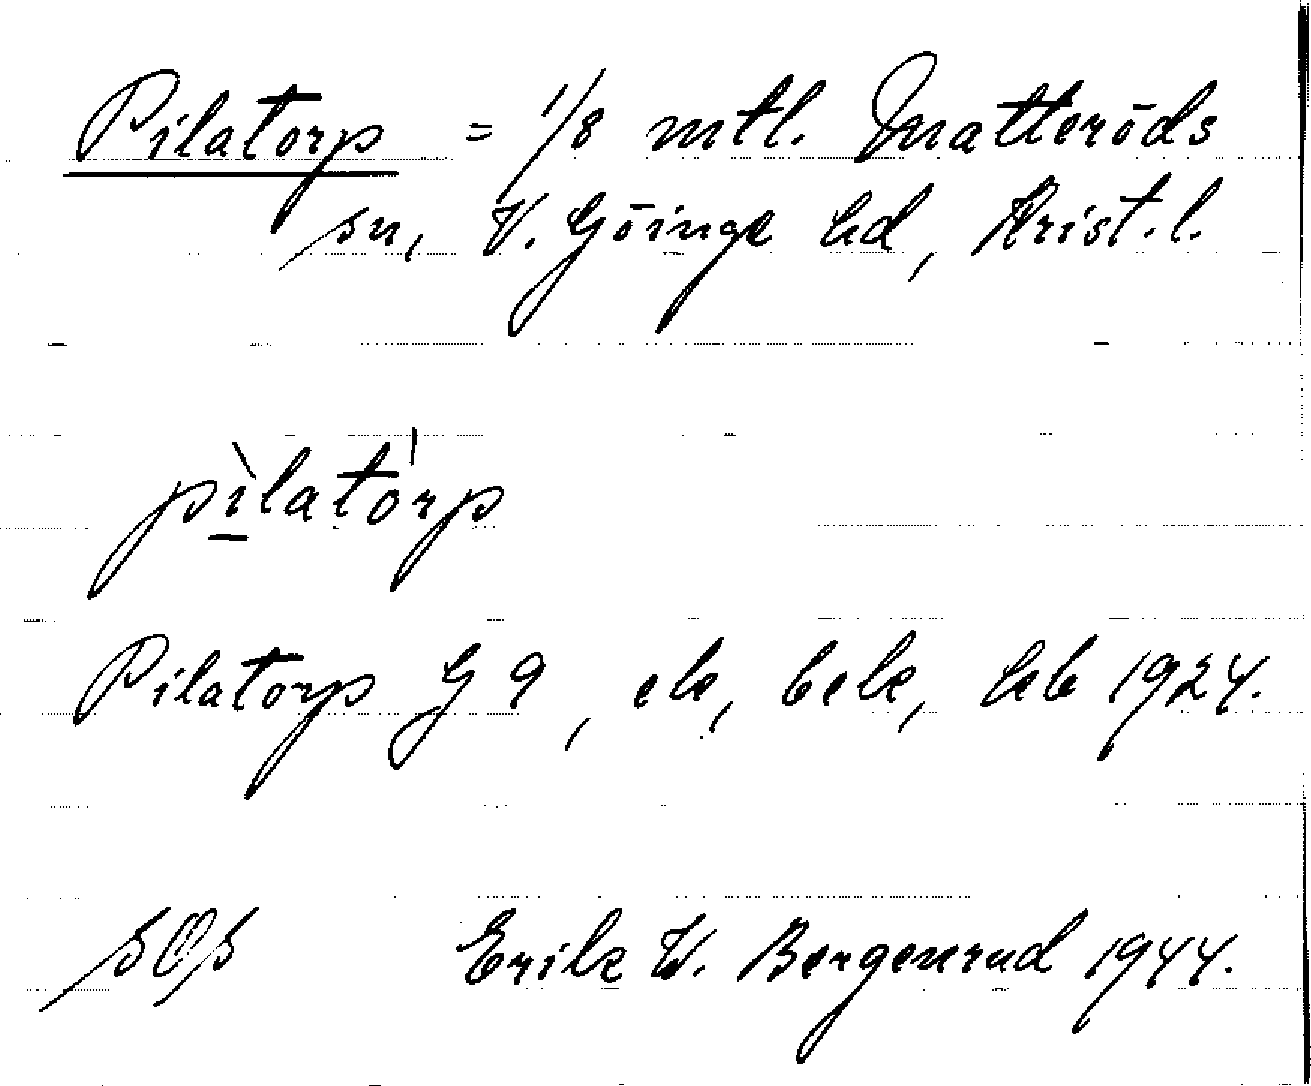 Pilatorp = 1/8 mtl. Matteröds
sn, V. Göinge hd, Krist. l.
pìlatórp
Pilatorp G 9, ek, bek, kb 1924.
SOS Erik W. Bergenrud 1944.